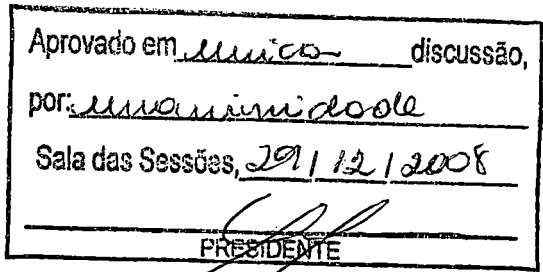 Aprovado em unica discussão,
por: unanimidade
Sala das Sessões, 29/12/2008
PRESIDENTE